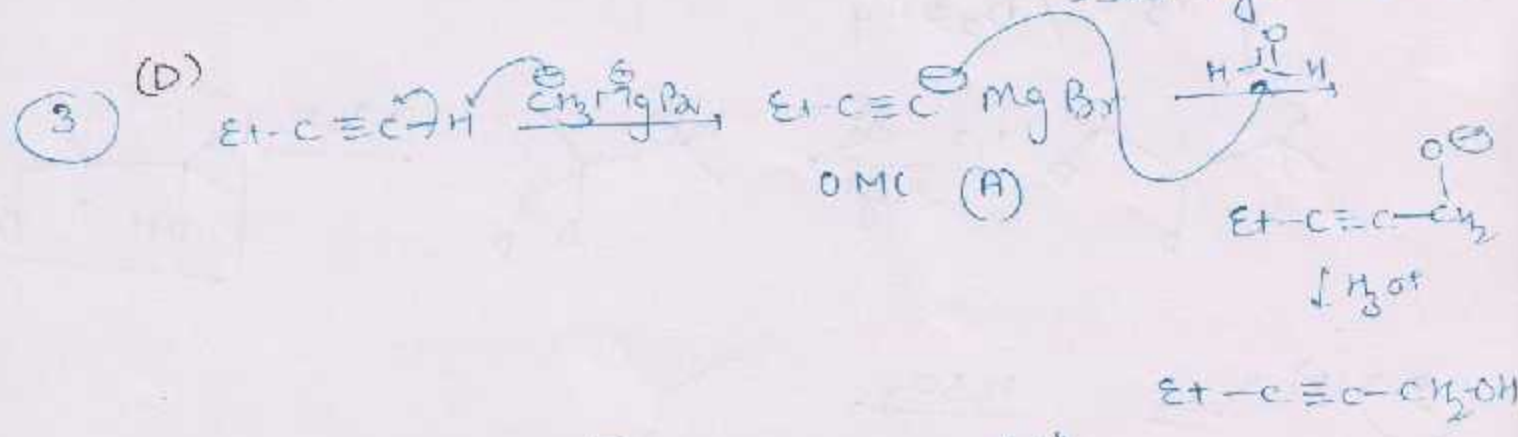 (D)
3 Et-C≡C-H CH₃MgBr Et-C≡C⊖ MgBr H H O
OMC (A)
O⊖
Et-C≡C-CH₂
↓ H₃O+
Et-C≡C-CH₂-OH